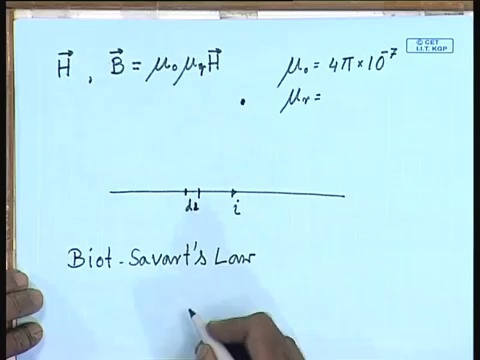 © CET
I.I.T. KGP
H⃗ , B⃗ = μ₀μᵣH⃗
μ₀ = 4π × 10⁻⁷
μᵣ =
dl
i
Biot-Savart's Law